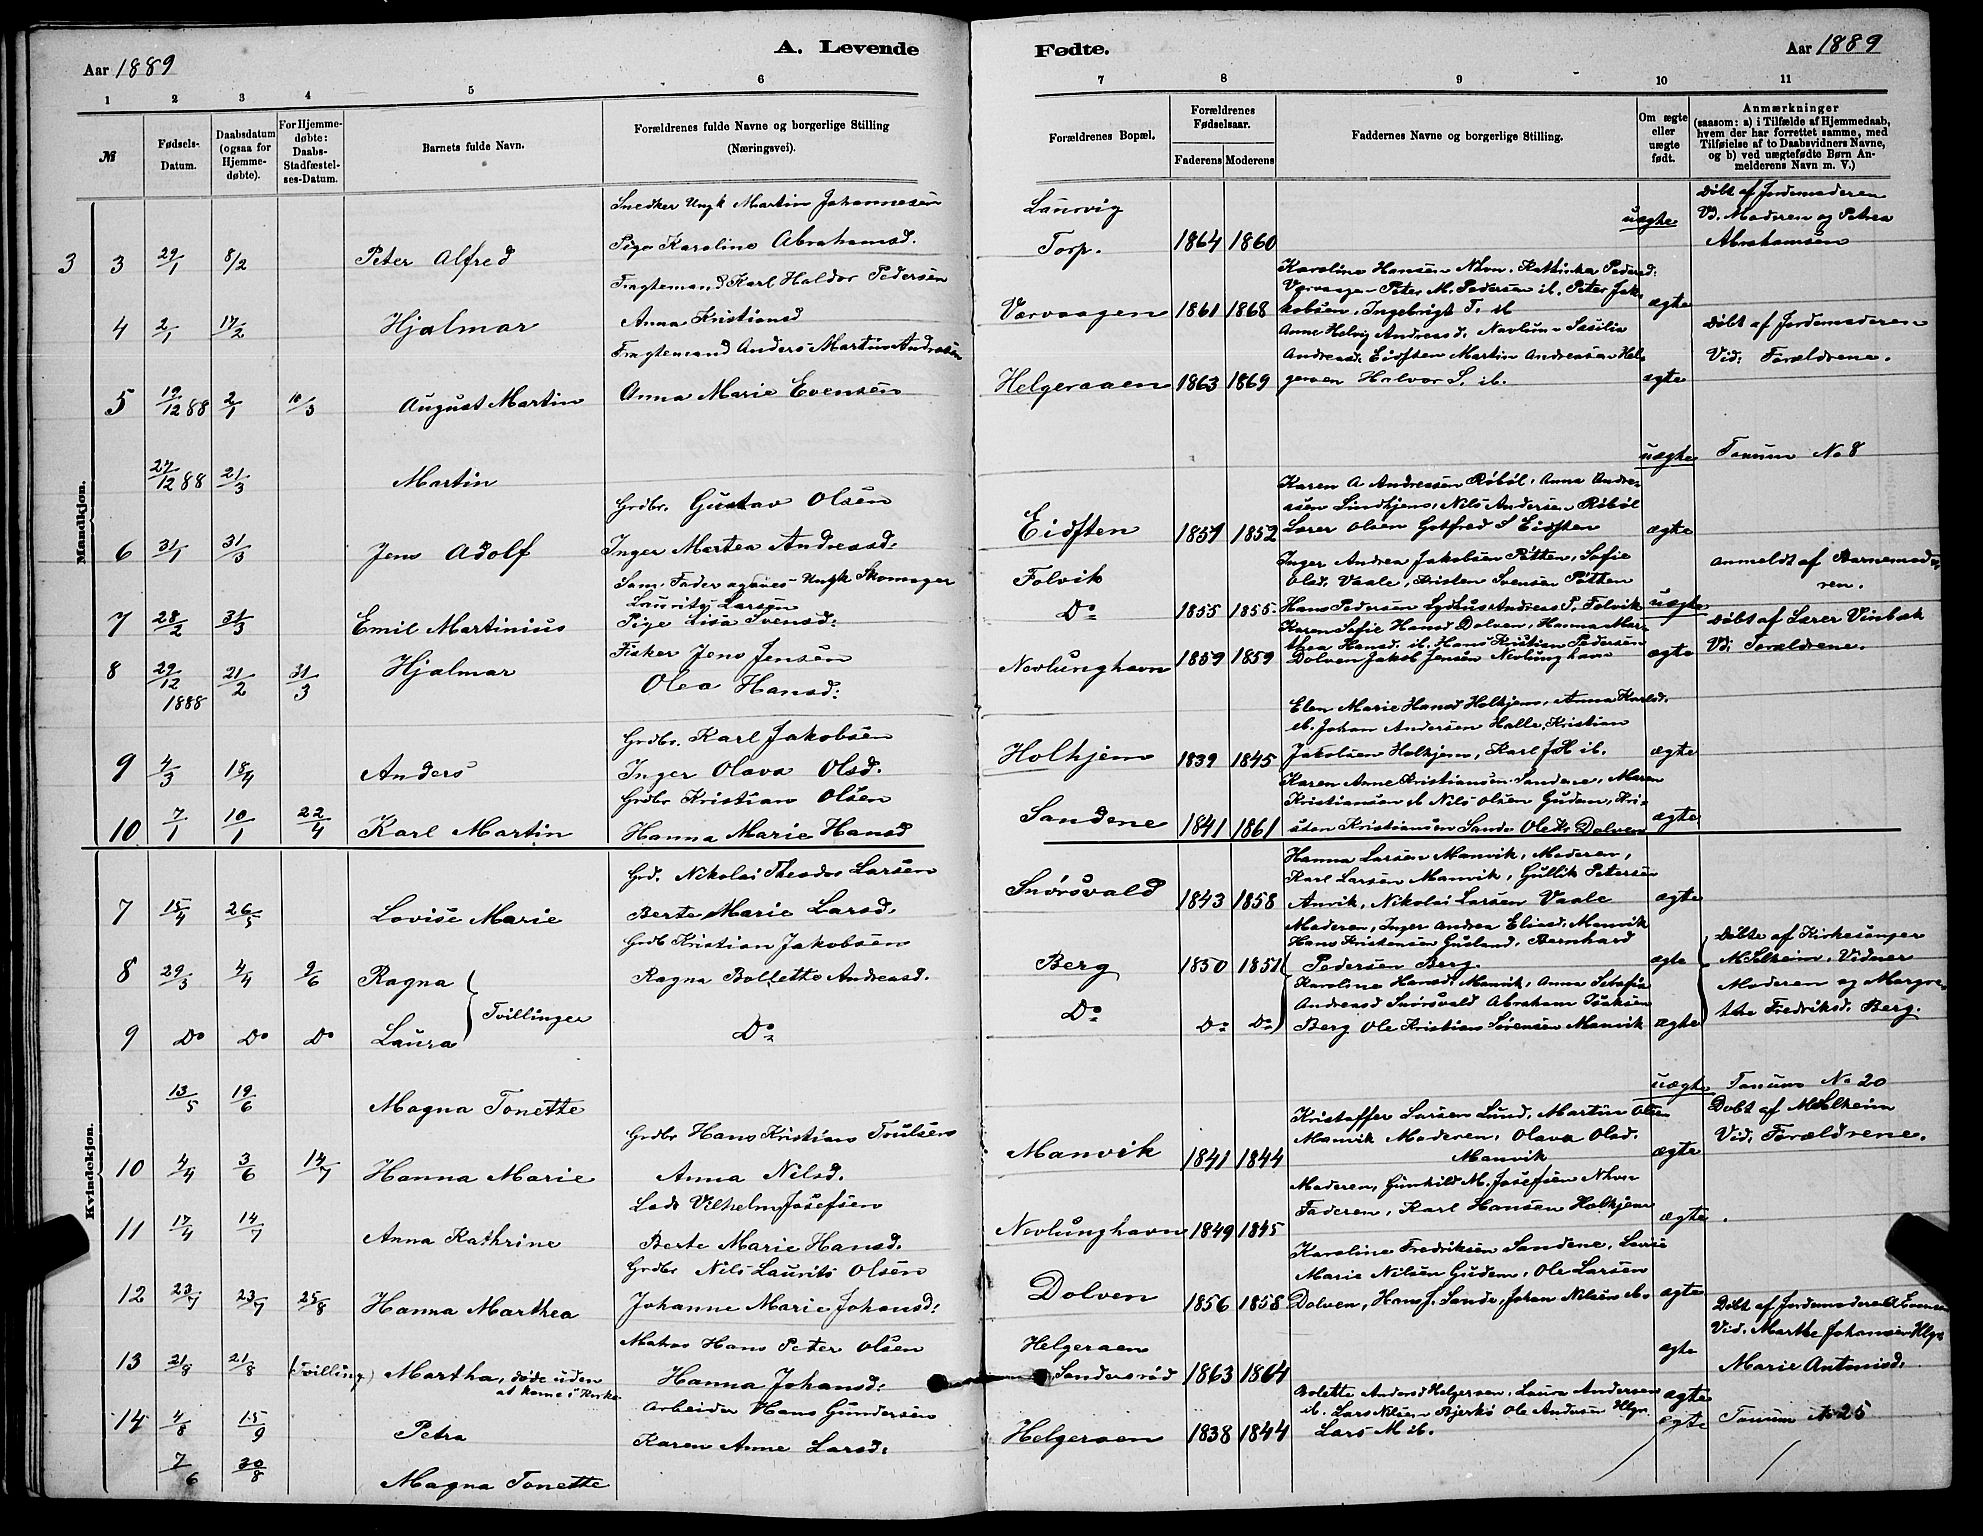 A. Levende
Aar 1889
1 2 3 4 5 6
№
Fødsels-Datum.
Daabsdatum (ogsaa for Hjemme-døbte).
For Hjemme-døbte: Daabs-Stadfæstel-ses-Datum.
Barnets fulde Navn.
Forældrenes fulde Navne og borgerlige Stilling (Næringsvei).
Mandkjøn.
Snedker Ungk Martin Johannesen
3 3 29/1 8/2 Peter Alfred Pige Karoline Abrahamsd.
Fragtemand Karl Haldor Pedersen
4 2/1 17/2 Hjalmar Anna Kristiansd
Fragtemand Anders Martin Andresen
5 19/12 88 2/1 10/3 August Martin Anna Marie Evensen
27/12 88 21/3 Martin
Grdbr. Gustav Olsen
6 31/1 31/3 Jens Adolf Inger Martea Andreasd:
Som Fader agives Ungk Skomager
Lauritz Larsen
7 28/2 31/3 Emil Martinius Pige Lisa Svensd:
Fisker Jens Jensen
8 29/12 1888 21/2 31/3 Hjalmar Olea Hansd:
Grdbr. Karl Jakobsen
9 4/3 18/4 Anders Inger Olava Olsd.
Grdbr Kristian Olsen
10 7/1 10/1 22/4 Karl Martin Hanna Marie Hansd
Kvindekjøn.
Grd. Nikolai Theodor Larsen
7 15/4 26/5 Lovise Marie Berte Marie Larsd.
Grdb Kristian Jakobsen
8 29/3 4/4 9/6 Ragna Ragna Bollette Andreasd.
Tvillinger
9 Do Do Do Laura Do
13/5 19/6 Magna Tonette
Grdbr Hans Kristian Poulsen
10 4/4 3/6 14/7 Hanna Marie Anna Nilsd.
Lods Vilhelm Josefsen
11 17/4 14/7 Anna Kathrine Berte Marie Hansd.
Grdbr Nils Laurits Olsen
12 23/7 23/7 25/8 Hanna Marthea Johanne Marie Johansd:
Matros Hans Peter Olsen
13 21/8 21/8 (Tvilling) Martha, døde uden at kome i Kirke Hanna Johansd:
Arbeider Hans Gundersen
14 4/8 15/9 Petra Karen Anne Larsd:
7/6 30/8 Magna Tonette
Fødte.
Aar 1889
7 8 9 10 11
Forældrenes Bopæl.
Forældrenes Fødselsaar.
Faderens Moderens
Faddernes Navne og borgerlige Stilling.
Om ægte eller uægte født.
Anmærkninger
(saasom: a) i Tilfælde af Hjemmedaab,
hvem der har forrettet samme, med
Tilføielse af to Daabsvidners Navne,
og b) ved uægtefødte Børn An-
melderens Navn m. V.)
Laurvig
Torp. 1864 1860 uægte
Døbt af Jordemoderen
Vd. Moderen og Petrea
Abrahamsen
Karoline Hansen Nhvn. Kathinka Pedersd:
Værvaagen Peter M. Pedersen ib. Peter Jak-
Værvaagen 1861 1868 kobsen, Ingebrigt T. ib ægte
Anne Helvig Andreasd. Navlum Sesilie
Andreasd. Eidsten Martin Andreasen Hel-
Helgeraaen 1863 1869 geraaen Halvor S. ib. ægte
Døbt af Jordemoderen
Vid: Forældrene.
uægte Tanum No 8
Karen A Andreasen Røbøl, Anna Andre-
asen Lindhjem, Nils Andersen Røbøl
Eidsten 1859 1852 Lærer Olsen Gotfred S Eidsten ægte
Inger Andrea Jakobsen Pøtten, Sofie
Folvik Olsd. Vaale, Kristen Svensen Pøtten
Do 1855 1855 Hans Pedersen Lydhus Andreas P. Folvik uægte
Anmeldt af Barnemode-
ren.
Karen Sofie Hansd Dolven, Hanna Mar-
thea Hansd. ib. Hans Kristian Pedersen
Nevlunghavn 1859 1859 Dolven Jakob Jensen Nevlunghavn ægte
Døbt af Lærer Vinbæk
Vd: Forældrene.
Elen Marie Hansd Holhjem, Anna Karlsd.
ib. Johan Andersen Halle, Kristian
Holhjem 1839 1845 Jakobsen Holhjem, Karl J H ib. ægte
Karen Anne Kristiansen Sandene, Maren
Kristiansen ib Nils Olsen Gudem, Kri-
Sandene 1841 1861 sten Kristiansen Sande Ole Ks Dolven ægte
Hanna Larsen Manvik, Moderen,
Karl Larsen Manvik, Gullik Petersen
Snørsvald 1843 1858 Anvik, Nikolai Larsen Vaale ægte
Moderen, Inger Andrea Eliasd. Manvik
Hans Kristensen Gusland, Bernhard
Berg 1850 1851 Pedersen Berg. ægte
Karoline Hansd. Manvik, Anna Sebofia
Andreasd Snørsvald Abraham Isaksen
Do Do Do Berg Ole Kristian Sørensen Manvik ægte
Døbte af Kirkesanger
M Solheim, Vidner
Moderen og Margre-
the Fredriksd. Berg.
uægte Tanum No 20
Kristoffer Larsen Lund, Martin Olsen
Manvik Moderen, Olava Olsd.
Manvik 1841 1844 Manvik ægte
Døbt af M Solheim
Vid: Forældrene.
Moderen, Gunhild M. Josefsen Nhvn
Faderen, Karl Hansen Holhjem
Nevlunghavn 1849 1845 ægte.
Karoline Fredriksen Sandene, Lovise
Marie Nilsen Gudem, Ole Larsen
Dolven 1856 1858 Dolven, Hans J. Sande, Johan Nilsen ib. ægte
Helgeraaen
Sandersrød 1863 1864 ægte
Døbt af Jordemoderen A Evensen
Vid. Marthe Johansen Hlgr
Marie Antonisd.
Bolette Andersd Helgeraaen, Laura Andersen
ib. Lars Nilsen Bjerkø Ole Andersen Hlgr. ægte
Helgeraaen 1838 1844 Lars M ib. ægte Tanum No 25